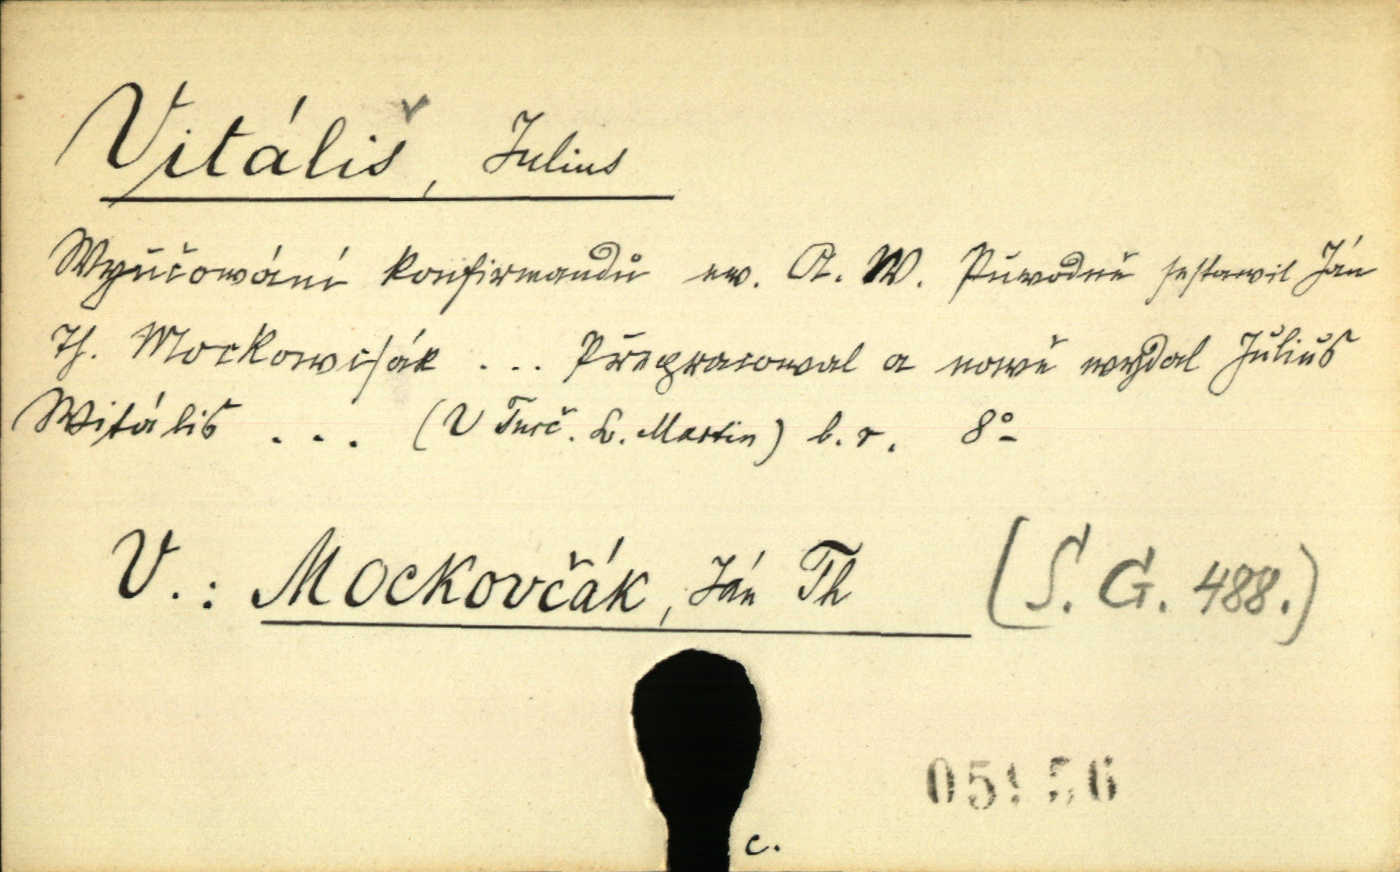 Vitališ, Julius
Wyučowání konfirmandů ew. A. W. Půwodně sestawil Ján
Th. Mockowcsák ... Přepracowal a nowě wydal Július
Witális ... (V Turč. Sv. Martin) b. r. 8°
V.: Mockovčák, Ján Th
(S. G. 488.)
c.